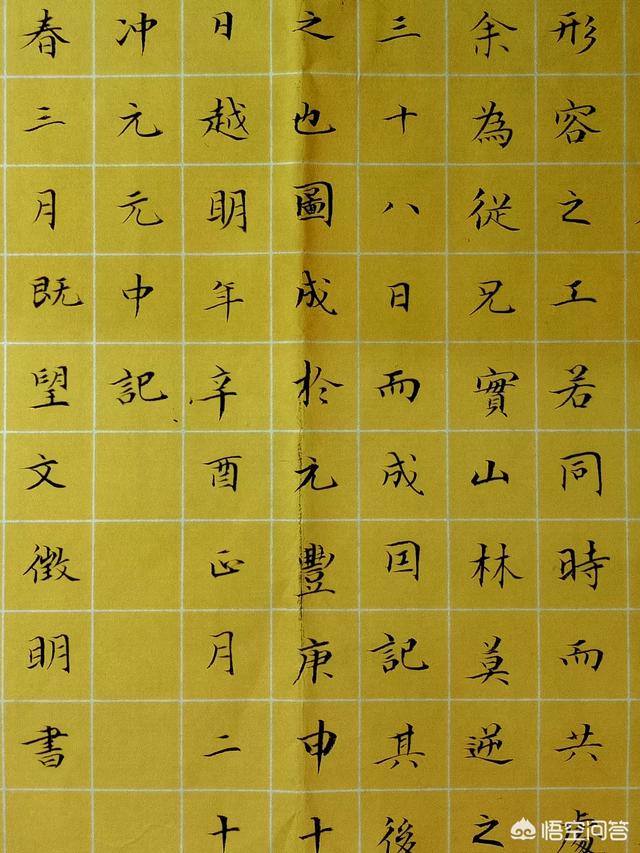 形容之工若同時而共處
余為從兄實山林莫逆之
三十八日而成囙記其後
之也圖成於元豐庚申十
日越明年辛酉正月二十
冲元元中記
春三月既望文徵明書
悟空问答